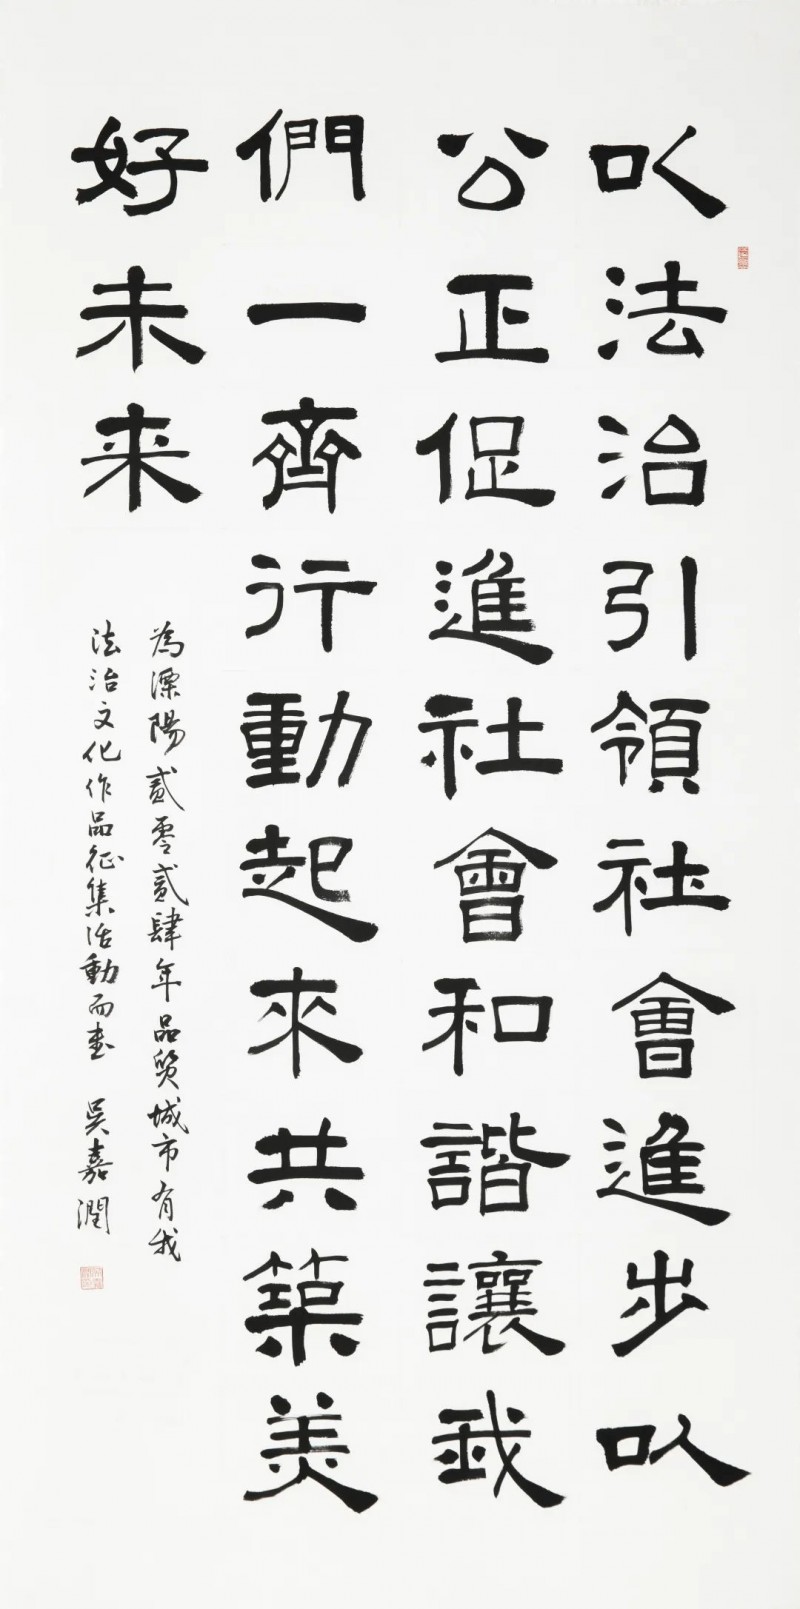 以法治引領社會進步以
公正促進社會和諧讓我
們一齊行動起來共築美
好未来
為溧陽貳零貳肆年品質城市有我
法治文化作品征集活動而書 吴嘉潤